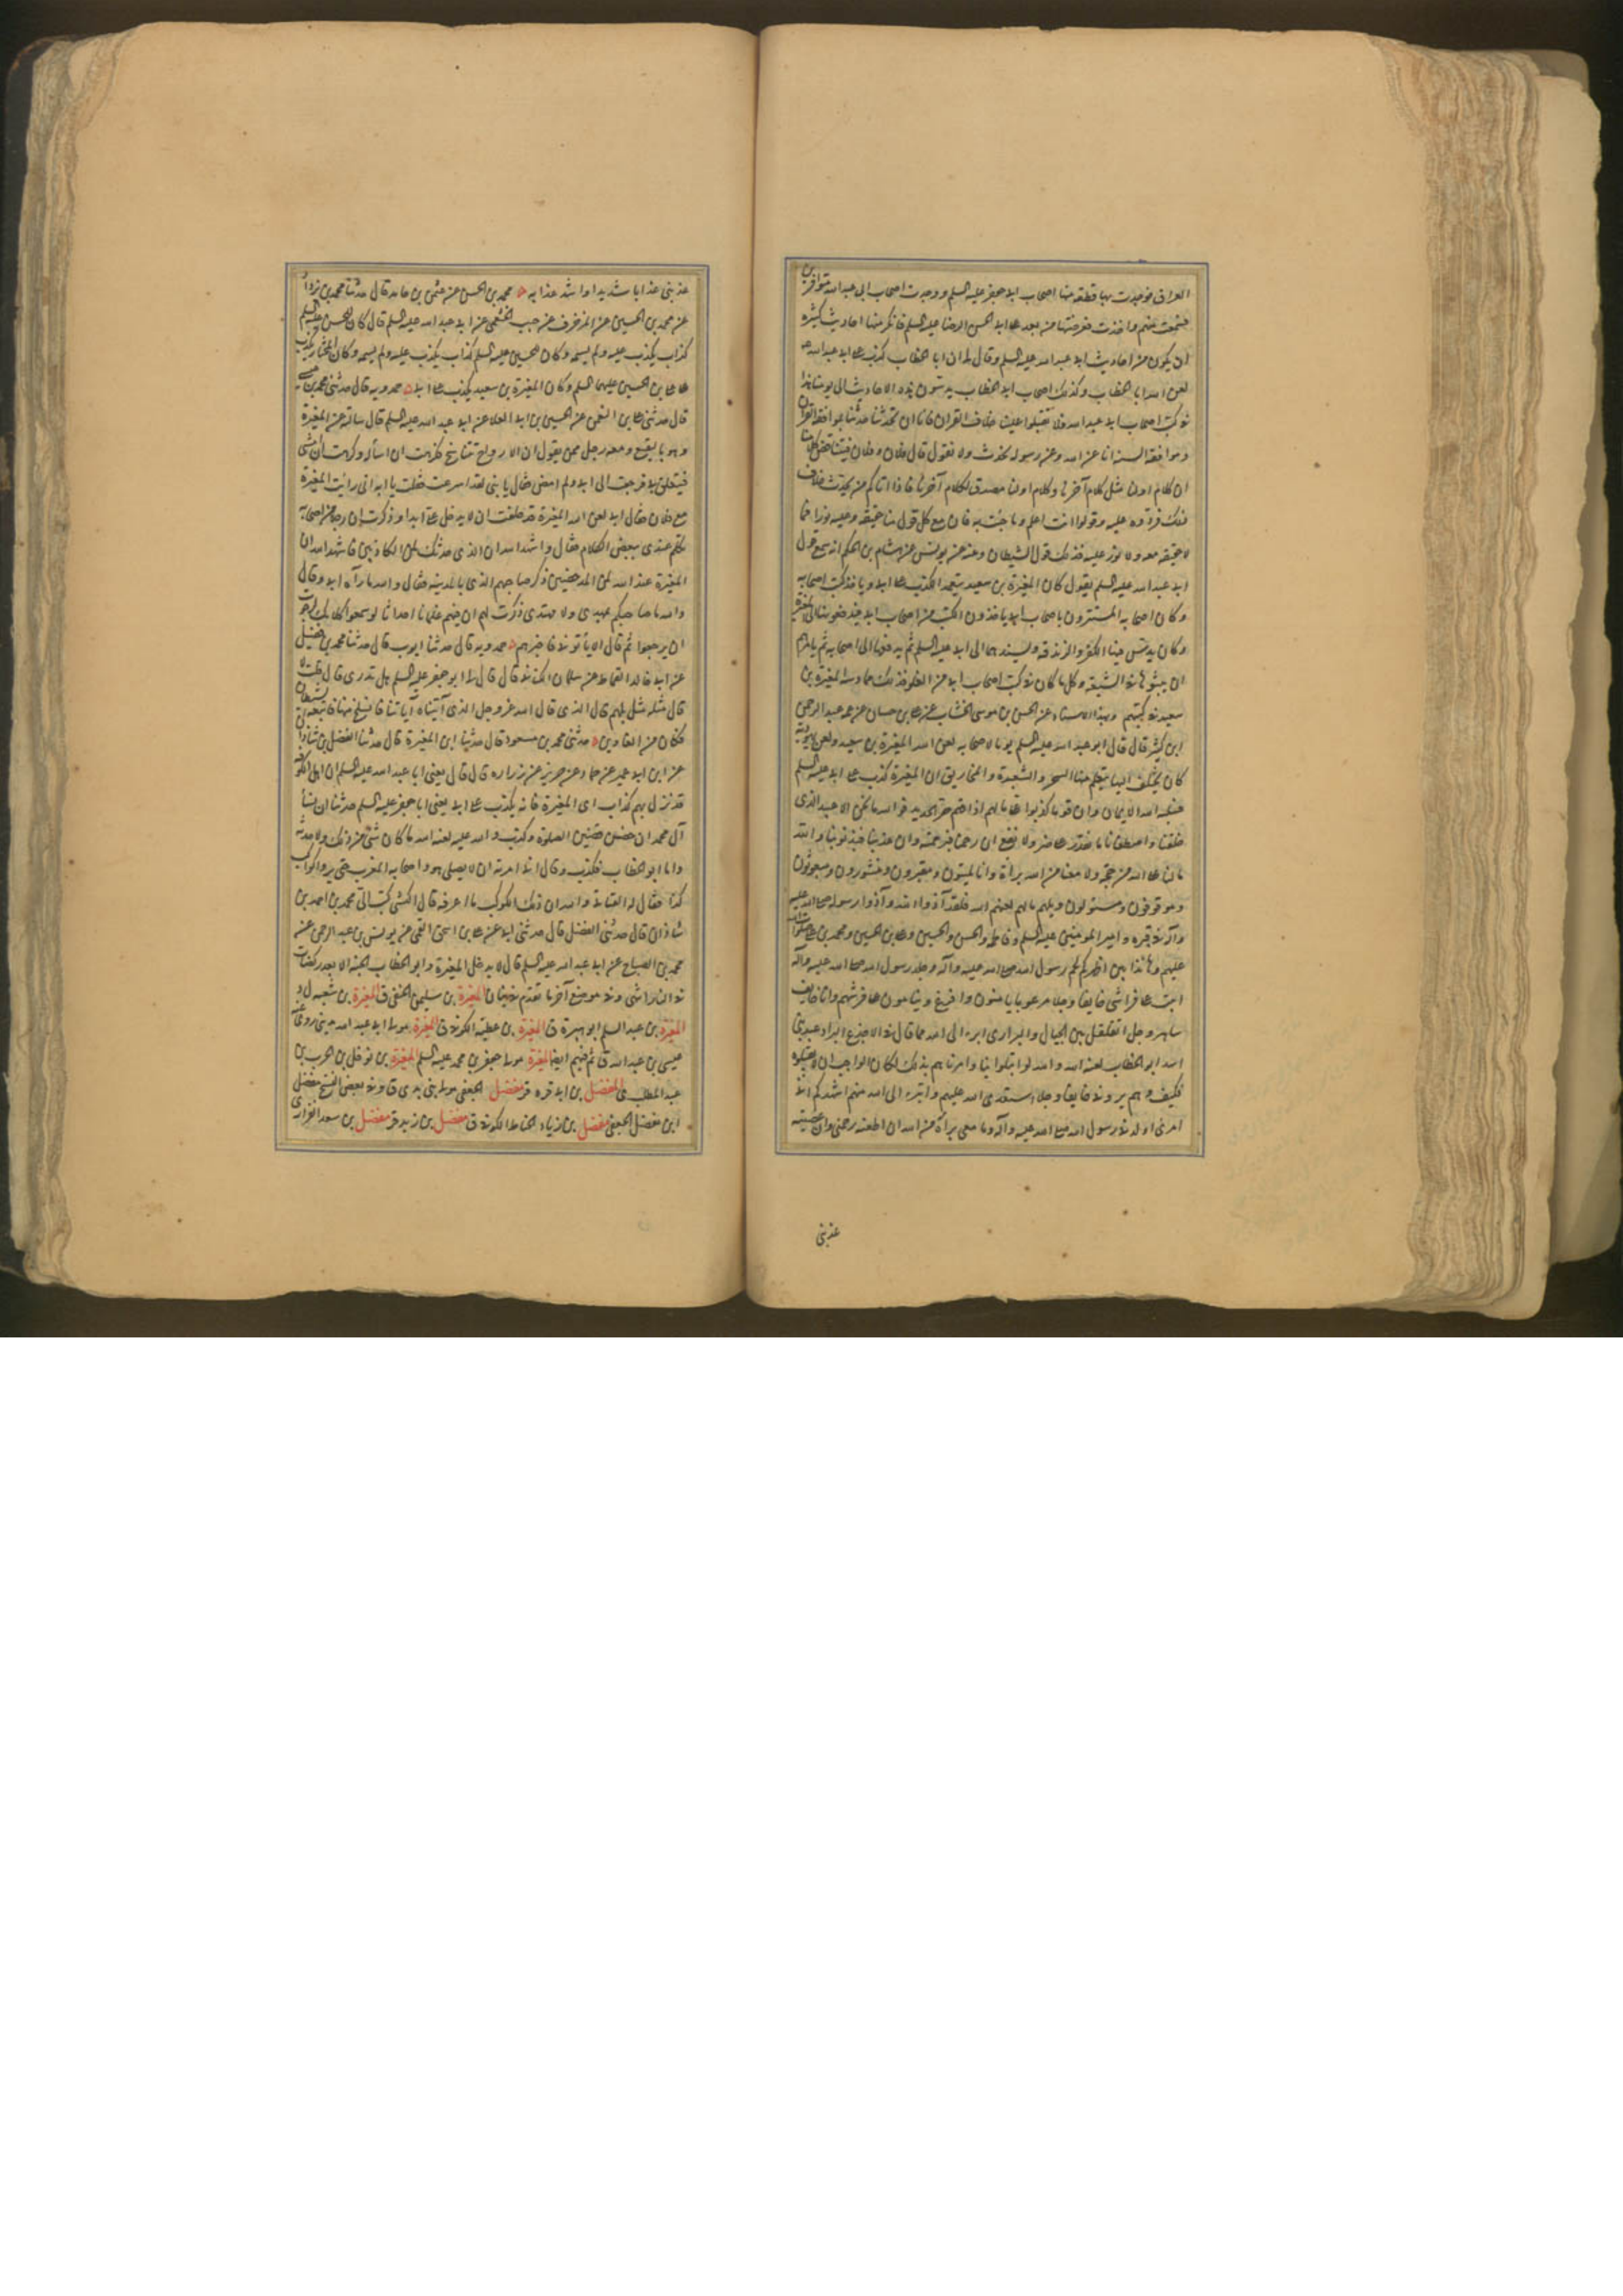 العراق فوجدت بها قطعة من اصحاب ابى جعفر عليه السلم ووجدت اصحاب ابى عبد الله متوافرين
فسمعت منهم واخذت فعرضتها من بعد على ابى الحسن الرضا عليه السلم فانكر منها احاديث كثيرة
ان يكون من احاديث ابى عبد الله عليه السلم وقال لى ان ابا الخطاب كذب على ابى عبد الله
لعن الله ابا الخطاب وكذلك اصحاب ابى الخطاب يدسون هذه الاحاديث الى يومنا هذا
فى كتب اصحاب ابى عبد الله فلا تقبلوا علينا خلاف القران فانا ان تحدثنا حدثنا بموافقة القران
وموافقة السنة انا عن الله وعن رسوله نحدث ولا نقول قال فلان وفلان فيتناقض كلامنا
ان كلام اولنا مثل كلام آخرنا وكلام اولنا مصدق لكلام آخرنا فاذا اتاكم من يحدث خلاف
ذلك فردوه عليه وقولوا انت اعلم وما جئت به فان مع كل قول منا حقيقة وعليه نورا فما
لا حقيقة معه ولا نور عليه فذلك قول الشيطان وعنه عن يونس عن هشام بن الحكم انه سمع
ابى عبد الله عليه السلم يقول كان المغيرة بن سعيد يتعمد الكذب على ابى وياخذ كتب اصحابه
وكان اصحابه المستترون باصحاب ابى ياخذون الكتب من اصحاب ابى فيدفعونها الى المغيرة
وكان يدس فيها الكفر والزندقة ويسندها الى ابى عليه السلم ثم يدفعها الى اصحابه ثم يامرهم
ان يبثوها فى الشيعة وكل ما كان فى كتب اصحاب ابى من الغلو فذلك مما دسه المغيرة بن
سعيد فى كتبهم وبهذا الاسناد عن الحسن بن موسى الخشاب عن على بن حسان عن عمه عبد الرحمن
ابن كثير قال قال ابو عبد الله عليه السلم يوما لاصحابه لعن الله المغيرة بن سعيد ولعن يهودية
كان يختلف اليها يتعلم منها السحر والشعبذة والمخاريق ان المغيرة كذب على ابى عليه السلم
فسلبه الله الايمان وان قوما كذبوا على ما لهم اذاقهم حر الحديد فوالله ما نحن الا عبيد الذى
خلقنا واصطفانا ما نقدر على ضر ولا نفع ان رحمنا فبرحمته وان عذبنا فبذنوبنا والله
ما لنا على الله من حجة ولا معنا من الله براءة وانا لميتون ومقبرون ومنشورون ومبعوثون
وموقوفون ومسئولون ويلهم ما لهم لعنهم الله فلقد آذوا الله وآذوا رسوله صلى الله عليه
وآله فى قبره وامير المومنين عليه السلم وفاطمة والحسن والحسين وعلى بن الحسين ومحمد بن على صلوات الله
عليهم وها انا ذا بين اظهركم لحم رسول الله صلى الله عليه وآله وجلد رسول الله صلى الله عليه وآله
ابيت على فراشى خايفا وجلا مرعوبا يامنون وافزع وينامون على فرشهم وانا خايف
ساهر وجل اتقلقل بين الجبال والبرارى ابرء الى الله مما قال فى الاجدع البراد عبد بنى
اسد ابو الخطاب لعنه الله والله لو ابتلوا بنا وامرناهم بذلك لكان الواجب ان لا يقبلوه
فكيف وهم يرونى خايفا وجلا استعدى الله عليهم واتبرء الى الله منهم اشهدكم انى
امرء ولدنى رسول الله صلى الله عليه وآله وما معى براءة من الله ان اطعته رحمنى وان عصيته
عذبنى
عذبنى عذابا شديدا او اشد عذابه محمد بن الحسن عن عثمن بن حامد قال حدثنا محمد بن يزداد
عن محمد بن الحسين عن المزخرف عن حبيب الخثعمى عن ابى عبد الله عليه السلم قال كان للحسن عليه السلم
كذاب يكذب عليه ولم يسمه وكان للحسين عليه السلم كذاب يكذب عليه ولم يسمه وكان المختار يكذب
على على بن الحسين عليهما السلم وكان المغيرة بن سعيد يكذب على ابى حمدويه قال حدثنى محمد بن عيسى
قال حدثنى على بن النعمن عن الحسين بن ابى العلا عن ابى عبد الله عليه السلم قال سالته عن المغيرة
وهو بالبقيع ومعه رجل ممن يقول ان الارواح تتناسخ فكرهت ان اساله وكرهت ان امشى
فيتعلق بى فرجعت الى ابى ولم امض فقال يا بنى لقد اسرعت فقلت يا ابه انى رايت المغيرة
مع فلان فقال ابى لعن الله المغيرة قد حلفت ان لا يدخل على ابدا وذكرت ان رجلا من اصحابه
تكلم عندى ببعض الكلام فقال واشهد الله ان الذى حدثك لمن الكاذبين فاشهد الله ان
المغيرة عند الله لمن المدحضين ذكر صاحبهم الذى بالمدينة فقال والله ما رآه ابى وقال
والله ما صاحبكم بمهدى ولا مهتدى وذكرت لهم ان فيهم غلمانا احداثا لو سمعوا كلامك لرجوت
ان يرجعوا ثم قال الا ياتونى فاخبرهم حمدويه قال حدثنا ايوب قال حدثنا محمد بن فضيل
عن ابى خالد القماط عن سلمان الكنانى قال قال لى ابو جعفر عليه السلم هل تدرى ما مثل المغيرة قلت لا
قال مثله مثل بلعم قال الذى قال الله عز وجل الذى آتيناه آياتنا فانسلخ منها فاتبعه الشيطان
فكان من الغاوين حدثنى محمد بن مسعود قال حدثنا ابن المغيرة قال حدثنا الفضل بن شاذان
عن ابن ابى عمير عن حماد عن حريز عن زراره قال قال يعنى ابا عبد الله عليه السلم ان اهل الكوفة
قد نزل بهم كذاب اى المغيرة فانه يكذب على ابى يعنى ابا جعفر عليه السلم حدثنا ان نساء
آل محمد ان حضن قضين الصلوة وكذب والله عليه لعنة الله ما كان شئ من ذلك ولا حدثه
واما ابو الخطاب فكذب وقال انى امرته ان لا يصلى هو واصحابه المغرب حتى يروا كوكب
كذا فقال له القنانى والله ان ذلك الكوكب ما اعرفه قال الكشى كتب الى محمد بن احمد بن
شاذان قال حدثنى الفضل قال حدثنى ابى عن على بن اسحق القمى عن يونس بن عبد الرحمن عن
محمد بن الصباح عن ابى عبد الله عليه السلم قال لا يدخل المغيرة وابو الخطاب الجنة الا بعد ركضات
فى النار اشى وفى موضع آخر ما تقدم فى بنان المغيرة بن سليمن الحنفى ق المغيرة بن شعبه ل د
المغيرة بن عبد السلم ابو هبيرة ق المغيرة بن عطية الكوفى ق المغيرة مولى ابى عبد الله
عيسى بن عبد الله ق ثم فيهم ايضا المغيرة مولى جعفر بن محمد عليه السلم المغيرة بن نوفل بن الحرب بن
عبد المطلب ى المفضل بن ابى قره قر مفضل الجعفى مولى بنى بدى ق وفى بعض النسخ مفضل
ابن مفضل الجعفى مفضل بن زياد الخياط الكوفى ق مفضل بن زيد قر مفضل بن سعد الفزارى